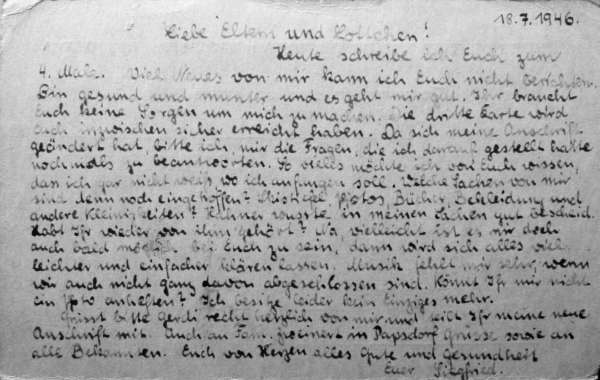 18.7.1946.
Liebe Eltern und Lottchen!
Heute schreibe ich Euch zum
4. Male. Viel Neues von mir kann ich Euch nicht berichten.
Bin gesund und munter und es geht mir gut. Ihr braucht
Euch keine Sorgen um mich zu machen. Die dritte Karte wird
Euch inzwischen sicher erreicht haben. Da sich meine Anschrift
geändert hat, bitte ich, mir die Fragen, die ich darauf gestellt hatte
nochmals zu beantworten. So vieles möchte ich von Euch wissen,
dass ich gar nicht weiß wo ich anfangen soll. Welche Sachen von mir
sind denn noch eingetroffen? Skistiefel, Fotos, Bücher, Bekleidung und
andere Kleinigkeiten? wusste in meinen Sachen gut Bescheid.
Habt Ihr wieder von ihm gehört? Na, vielleicht ist es mir doch
auch bald möglich bei Euch zu sein, dann wird sich alles viel
leichter und einfacher klären lassen. Musik fehlt mir sehr, wenn
wir auch nicht ganz davon abgeschlossen sind. Könnt Ihr mir nicht
ein Foto anheften? Ich besitze leider kein Einziges mehr.
Grüsst bitte Gerdi recht herzlich von mir und teilt Ihr meine neue
Anschrift mit. Auch an Fam. in Papsdorf Grüsse sowie an
alle Bekannten. Euch von Herzen alles Gute und Gesundheit
Euer Siegfried.